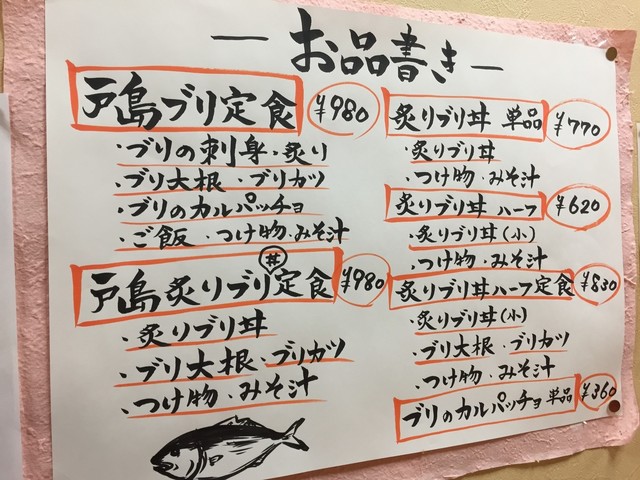 ーお品書きー
戸島ブリ定食 ¥980
・ブリの刺身・炙り
・ブリ大根・ブリカツ
・ブリのカルパッチョ
・ご飯・つけ物・みそ汁
戸島炙りブリ丼定食 ¥980
・炙りブリ丼
・ブリ大根・ブリカツ
・つけ物・みそ汁
炙りブリ丼 単品 ¥770
・炙りブリ丼
・つけ物・みそ汁
炙りブリ丼 ハーフ ¥620
・炙りブリ丼(小)
・つけ物・みそ汁
炙りブリ丼ハーフ定食 ¥830
・炙りブリ丼(小)
・ブリ大根・ブリカツ
・つけ物・みそ汁
ブリのカルパッチョ 単品 ¥360